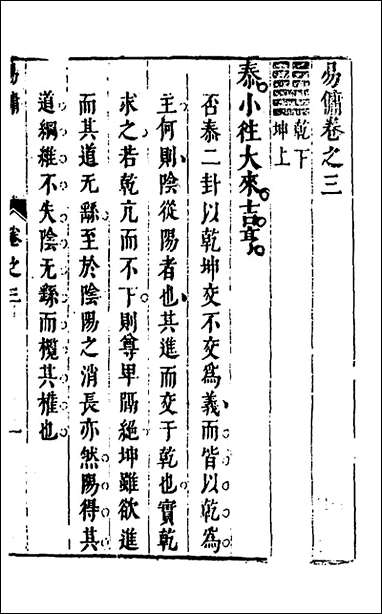 易傭卷之三
乾下
坤上
泰小徃大來吉亨
否泰二卦以乾坤交不交爲義而皆以乾爲
主何則陰從陽者也其進而交于乾也實乾
求之若乾亢而不下則尊卑隔絕坤雖欲進
而其道无繇至於陰陽之消長亦然陽得其
道綱維不失陰无繇而欖其權也
易傭
卷之三
一